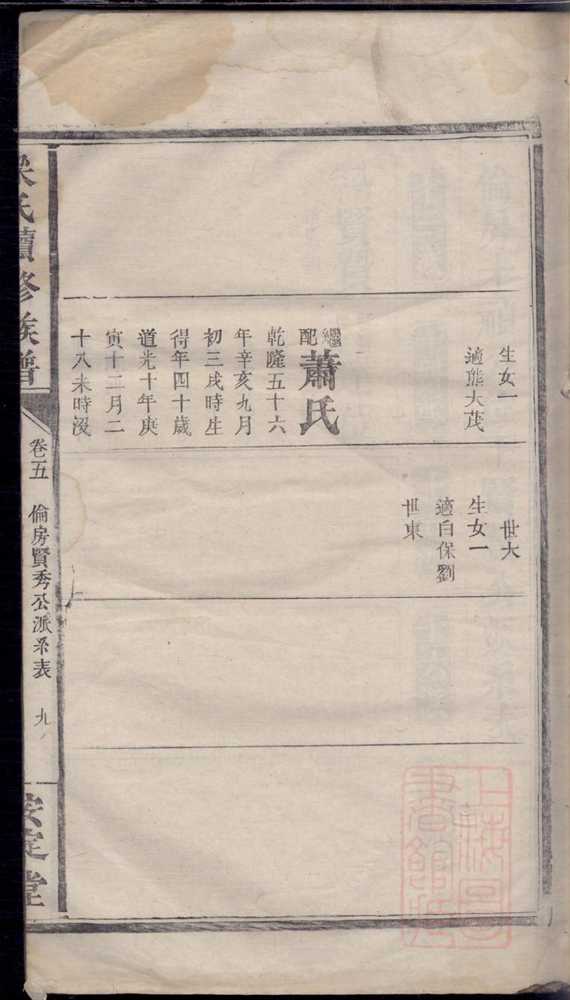 生女一
適熊大茂
繼配蕭氏
乾隆五十六
年辛亥九月
初三戌時生
得年四十歲
道光十年庚
寅十二月二
十八未時沒
世大
生女一
適白保劉
世東
氏續修族譜
卷五 倫房賢秀公派系表 九
安定堂
上海圖書館藏